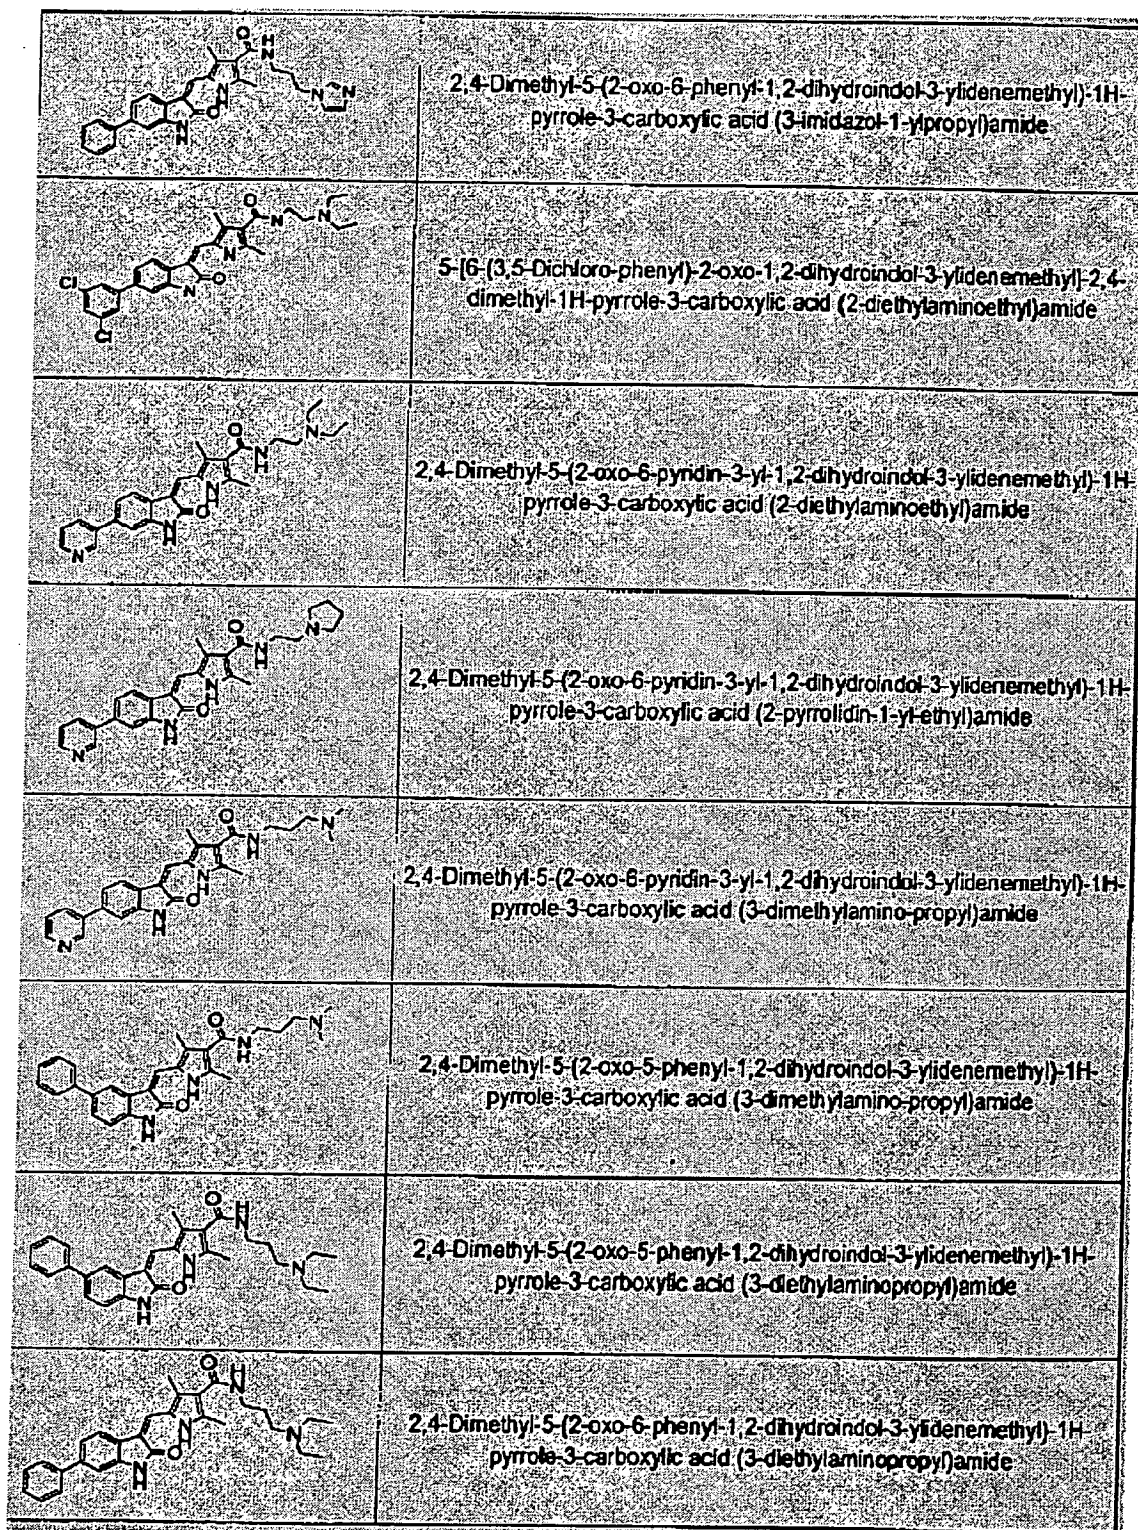 2,4-Dimethyl-5-(2-oxo-6-phenyl-1,2-dihydroindol-3-ylidenemethyl)-1H-
pyrrole-3-carboxylic acid (3-imidazol-1-ylpropyl)amide
5-[6-(3,5-Dichloro-phenyl)-2-oxo-1,2-dihydroindol-3-ylidenemethyl]-2,4-
dimethyl-1H-pyrrole-3-carboxylic acid (2-diethylaminoethyl)amide
2,4-Dimethyl-5-(2-oxo-6-pyridin-3-yl-1,2-dihydroindol-3-ylidenemethyl)-1H-
pyrrole-3-carboxylic acid (2-diethylaminoethyl)amide
2,4-Dimethyl-5-(2-oxo-6-pyridin-3-yl-1,2-dihydroindol-3-ylidenemethyl)-1H-
pyrrole-3-carboxylic acid (2-pyrrolidin-1-yl-ethyl)amide
2,4-Dimethyl-5-(2-oxo-6-pyridin-3-yl-1,2-dihydroindol-3-ylidenemethyl)-1H-
pyrrole-3-carboxylic acid (3-dimethylamino-propyl)amide
2,4-Dimethyl-5-(2-oxo-5-phenyl-1,2-dihydroindol-3-ylidenemethyl)-1H-
pyrrole-3-carboxylic acid (3-dimethylamino-propyl)amide
2,4-Dimethyl-5-(2-oxo-5-phenyl-1,2-dihydroindol-3-ylidenemethyl)-1H-
pyrrole-3-carboxylic acid (3-diethylaminopropyl)amide
2,4-Dimethyl-5-(2-oxo-6-phenyl-1,2-dihydroindol-3-ylidenemethyl)-1H-
pyrrole-3-carboxylic acid (3-diethylaminopropyl)amide